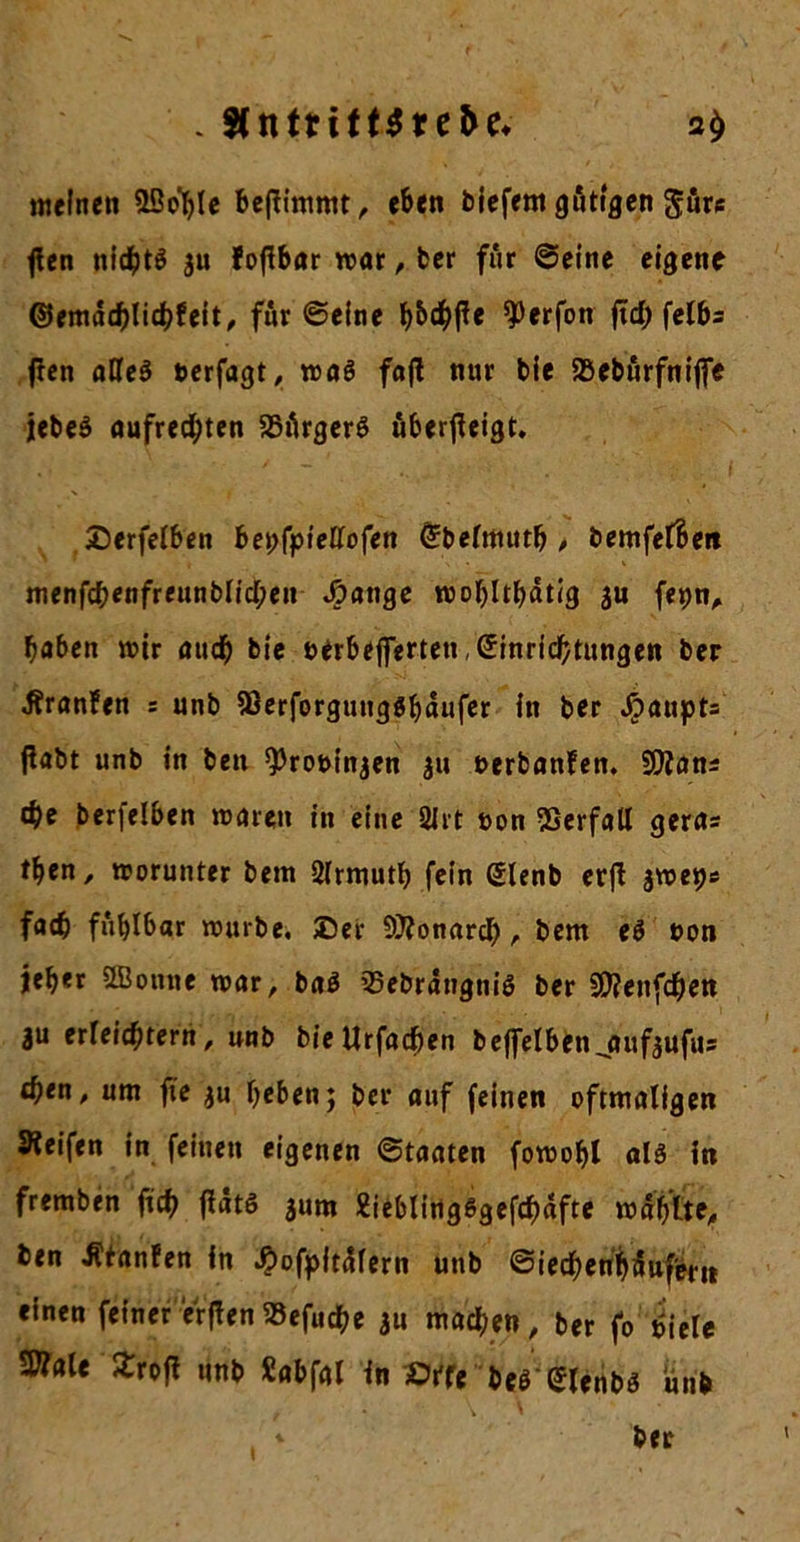 Antrittsrede. 29
meinen Wohle bestimmt, eben diesem gütigen Für-
sten nichts zu kostbar war, der für Seine eigene
Gemächlichkeit, für Seine höchste Person sich selb-
sten alles versagt, was fast nur die Bedürfnisse
jedes aufrechten Bürgers übersteigt.
Derselben beyspiellosen Edelmuth, demselben
menschenfreundlichen Hange wohlthätig zu seyn,
haben wir auch die verbesserten Einrichtungen der
Kranken- und Versorgungshäuser in der Haupt-
stadt und in den Provinzen zu verdanken. Man-
che derselben waren in eine Art von Verfall gera-
then, worunter dem Armuth sein Elend erst zwey-
fach fühlbar wurde. Der Monarch, dem es von
jeher Wonne war, das Bedrängniß der Menschen
zu erleichtern, und die Ursachen desselben aufzusu-
chen, um sie zu heben; der auf seinen oftmaligen
Reisen in seinen eigenen Staaten sowohl als in
fremden sich städts zum Lieblingsgeschäfte wählte,
den Kranken in Hospitälern und Siechenhäusern
einen seiner ersten Besuche zu machen, der so viele
Male Trost und Labsal in Orte des Elends und
der